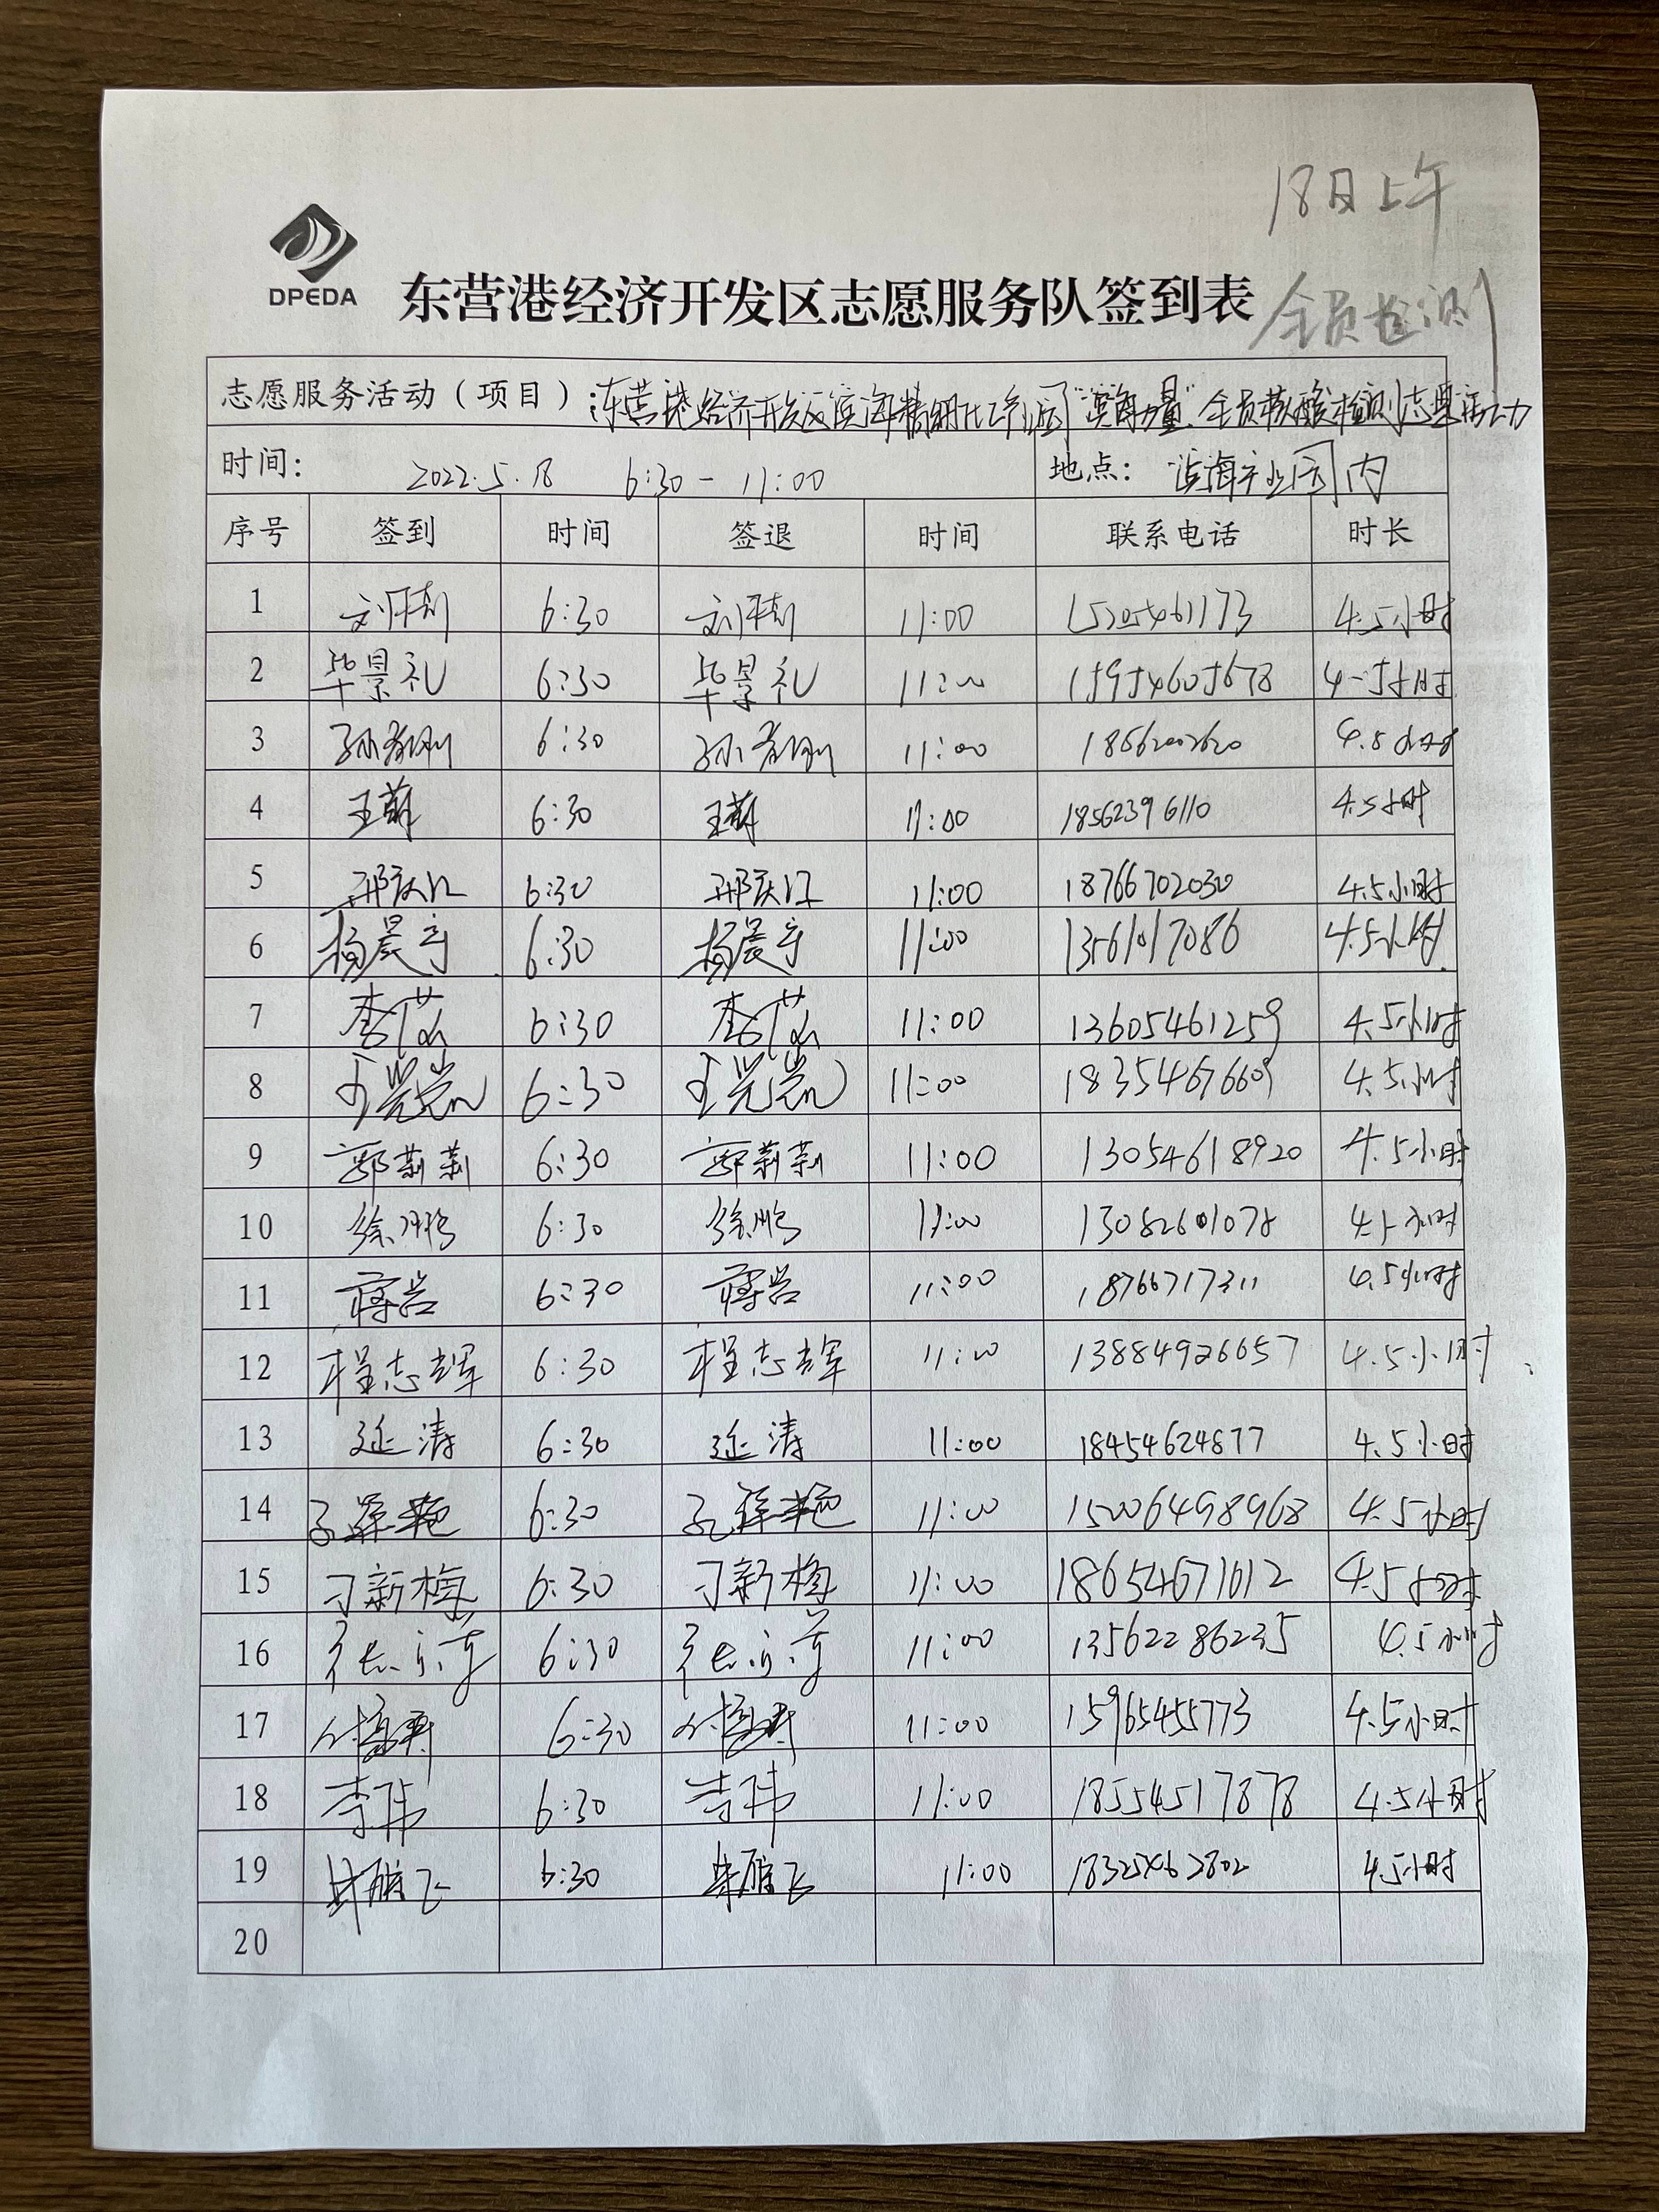 18日上午
DPEDA
东营港经济开发区志愿服务队签到表
全员检测
志愿服务活动（项目）东营港经济开发区滨海精细化工产业园"滨海力量"全员核酸检测志愿活动
时间： 2022.5.18 6:30-11:00 地点： 滨海产业园内
序号 签到 时间 签退 时间 联系电话 时长
1 6:30 11:00 15205461173 4.5小时
2 毕景礼 6:30 毕景礼 11:00 15954605678 4.5小时
3 6:30 11:00 18562002620 4.5小时
4 王萌 6:30 王萌 11:00 18562396110 4.5小时
5 6:30 11:00 18766702030 4.5小时
6 杨晨宇 6:30 杨晨宇 11:00 13561017086 4.5小时
7 6:30 11:00 13605461259 4.5小时
8 6:30 11:00 18354676609 4.5小时
9 郭莉莉 6:30 郭莉莉 11:00 13054618920 4.5小时
10 徐鹏 6:30 徐鹏 11:00 13082601078 4.5小时
11 蒋岩 6:30 蒋岩 11:00 18766717311 4.5小时
12 程志辉 6:30 程志辉 11:00 13884926657 4.5小时
13 延涛 6:30 延涛 11:00 18454624877 4.5小时
14 6:30 11:00 15006498968 4.5小时
15 刁新梅 6:30 刁新梅 11:00 18654671612 4.5小时
16 6:30 11:00 13562286235 4.5小时
17 6:30 11:00 15965455773 4.5小时
18 李伟 6:30 李伟 11:00 18554517878 4.5小时
19 6:30 11:00 4.5小时
20